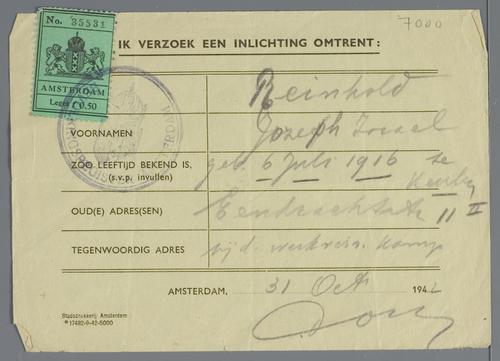 7000
No. 35531
IK VERZOEK EEN INLICHTING OMTRENT:
AMSTERDAM
Leges f 0.50
Reinhold
VOORNAMEN Jozeph Israel
ZOO LEEFTIJD BEKEND IS, geb. 6 Juli 1916 te
(s.v.p. invullen)
OUD(E) ADRES(SEN) Eendrachtstr 11 II
TEGENWOORDIG ADRES kamp
AMSTERDAM, 31 Oct 194
Stadsdrukkerij Amsterdam
17482-9-42-5000